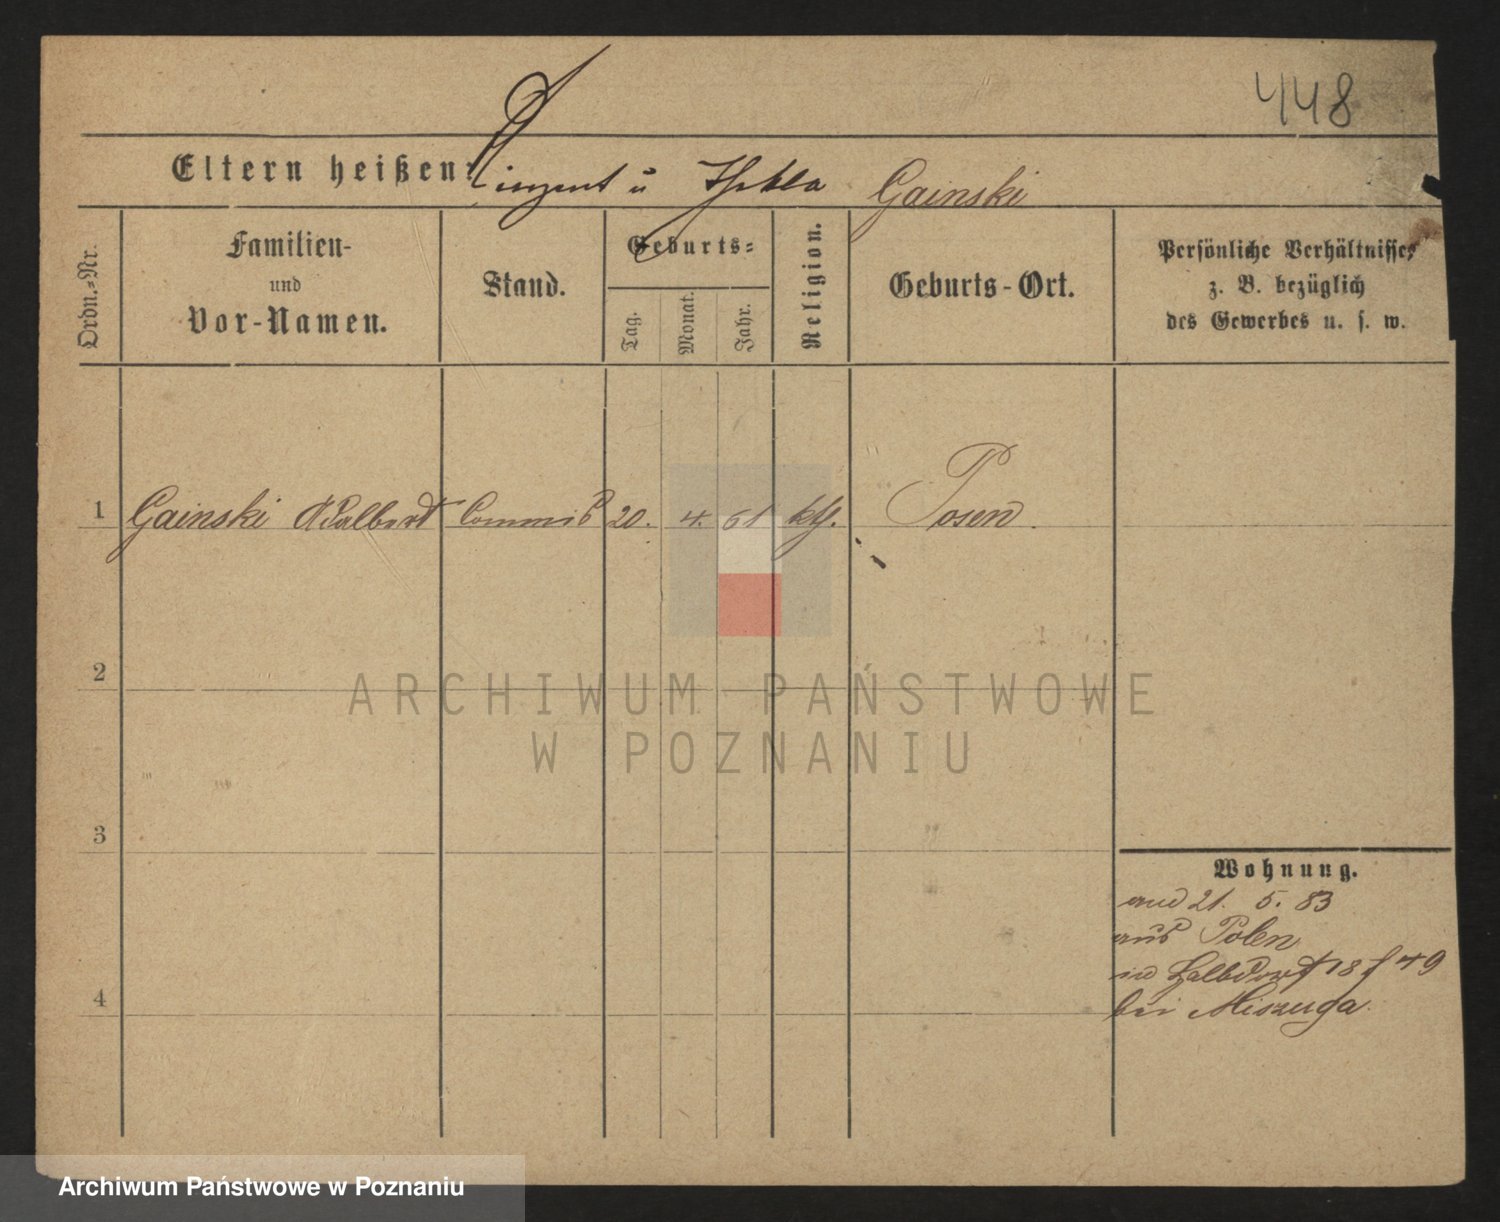 448
Eltern heißen: Vinzent u Thekla Gainski
Ordn.=Nr.
Familien-
und
Vor-Namen.
Stand.
Geburts=
Tag.
Monat.
Jahr.
Religion.
Geburts-Ort.
Persönliche Verhältnisse,
z. B. bezüglich
des Gewerbes u. s. w.
1 Gainski Adalbert Commis 20. 4. 61 kth. Posen.
2
3
4
Wohnung.
21. 5. 83
aus Polen
Halbdorf 18
bei Miszuga.
ARCHIWUM PAŃSTWOWE
W POZNANIU
Archiwum Państwowe w Poznaniu